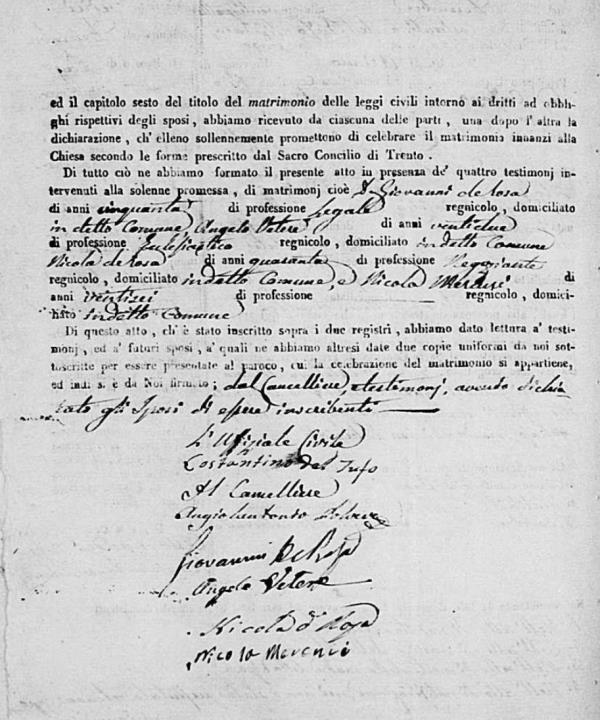 ed il capitolo sesto del titolo del matrimonio delle leggi civili intorno ai dritti ad obbli-
ghi rispettivi degli sposi, abbiamo ricevuto da ciascuna delle parti, una dopo l'altra la
dichiarazione, ch'elleno sollennemente promettono di celebrare il matrimonio innanzi alla
Chiesa secondo le forme prescritto dal Sacro Concilio di Trento.
Di tutto ciò ne abbiamo formato il presente atto in presenza de' quattro testimonj in-
tervenuti alla solenne promessa, di matrimonj cioè D. Giovanni de Rosa
di anni cinquanta di professione Legale regnicolo, domiciliato
in detto Comune, Angelo Vetere di anni ventidue
di professione Eclesiastico regnicolo, domiciliato in detto Comune
Nicola de Rosa di anni quaranta di professione Negoziante
regnicolo, domiciliato in detto Comune, e Nicola di
anni ventisei di professione regnicolo, domici-
liato in detto Comune
Di questo atto, ch'è stato inscritto sopra i due registri, abbiamo dato lettura a' testi-
monj, ed a' futuri sposi, a' quali ne abbiamo altresì date due copie uniformi da noi sot-
toscritte per essere presentate al paroco, cui la celebrazione del matrimonio si appartiene,
ed indi s. è da Noi firmato; dal Cancelliere, e testimonj, avendo dichia
rato gli Sposi di essere inscribenti
L'Ufiziale Civile
Costantino del Tufo
Il Cancelliere
Giovanni De Rosa
Angelo Vetere
Nicola d Rosa
Nicola